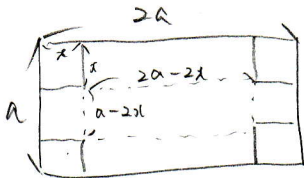 2a
x
x
2a-2x
a
a-2x